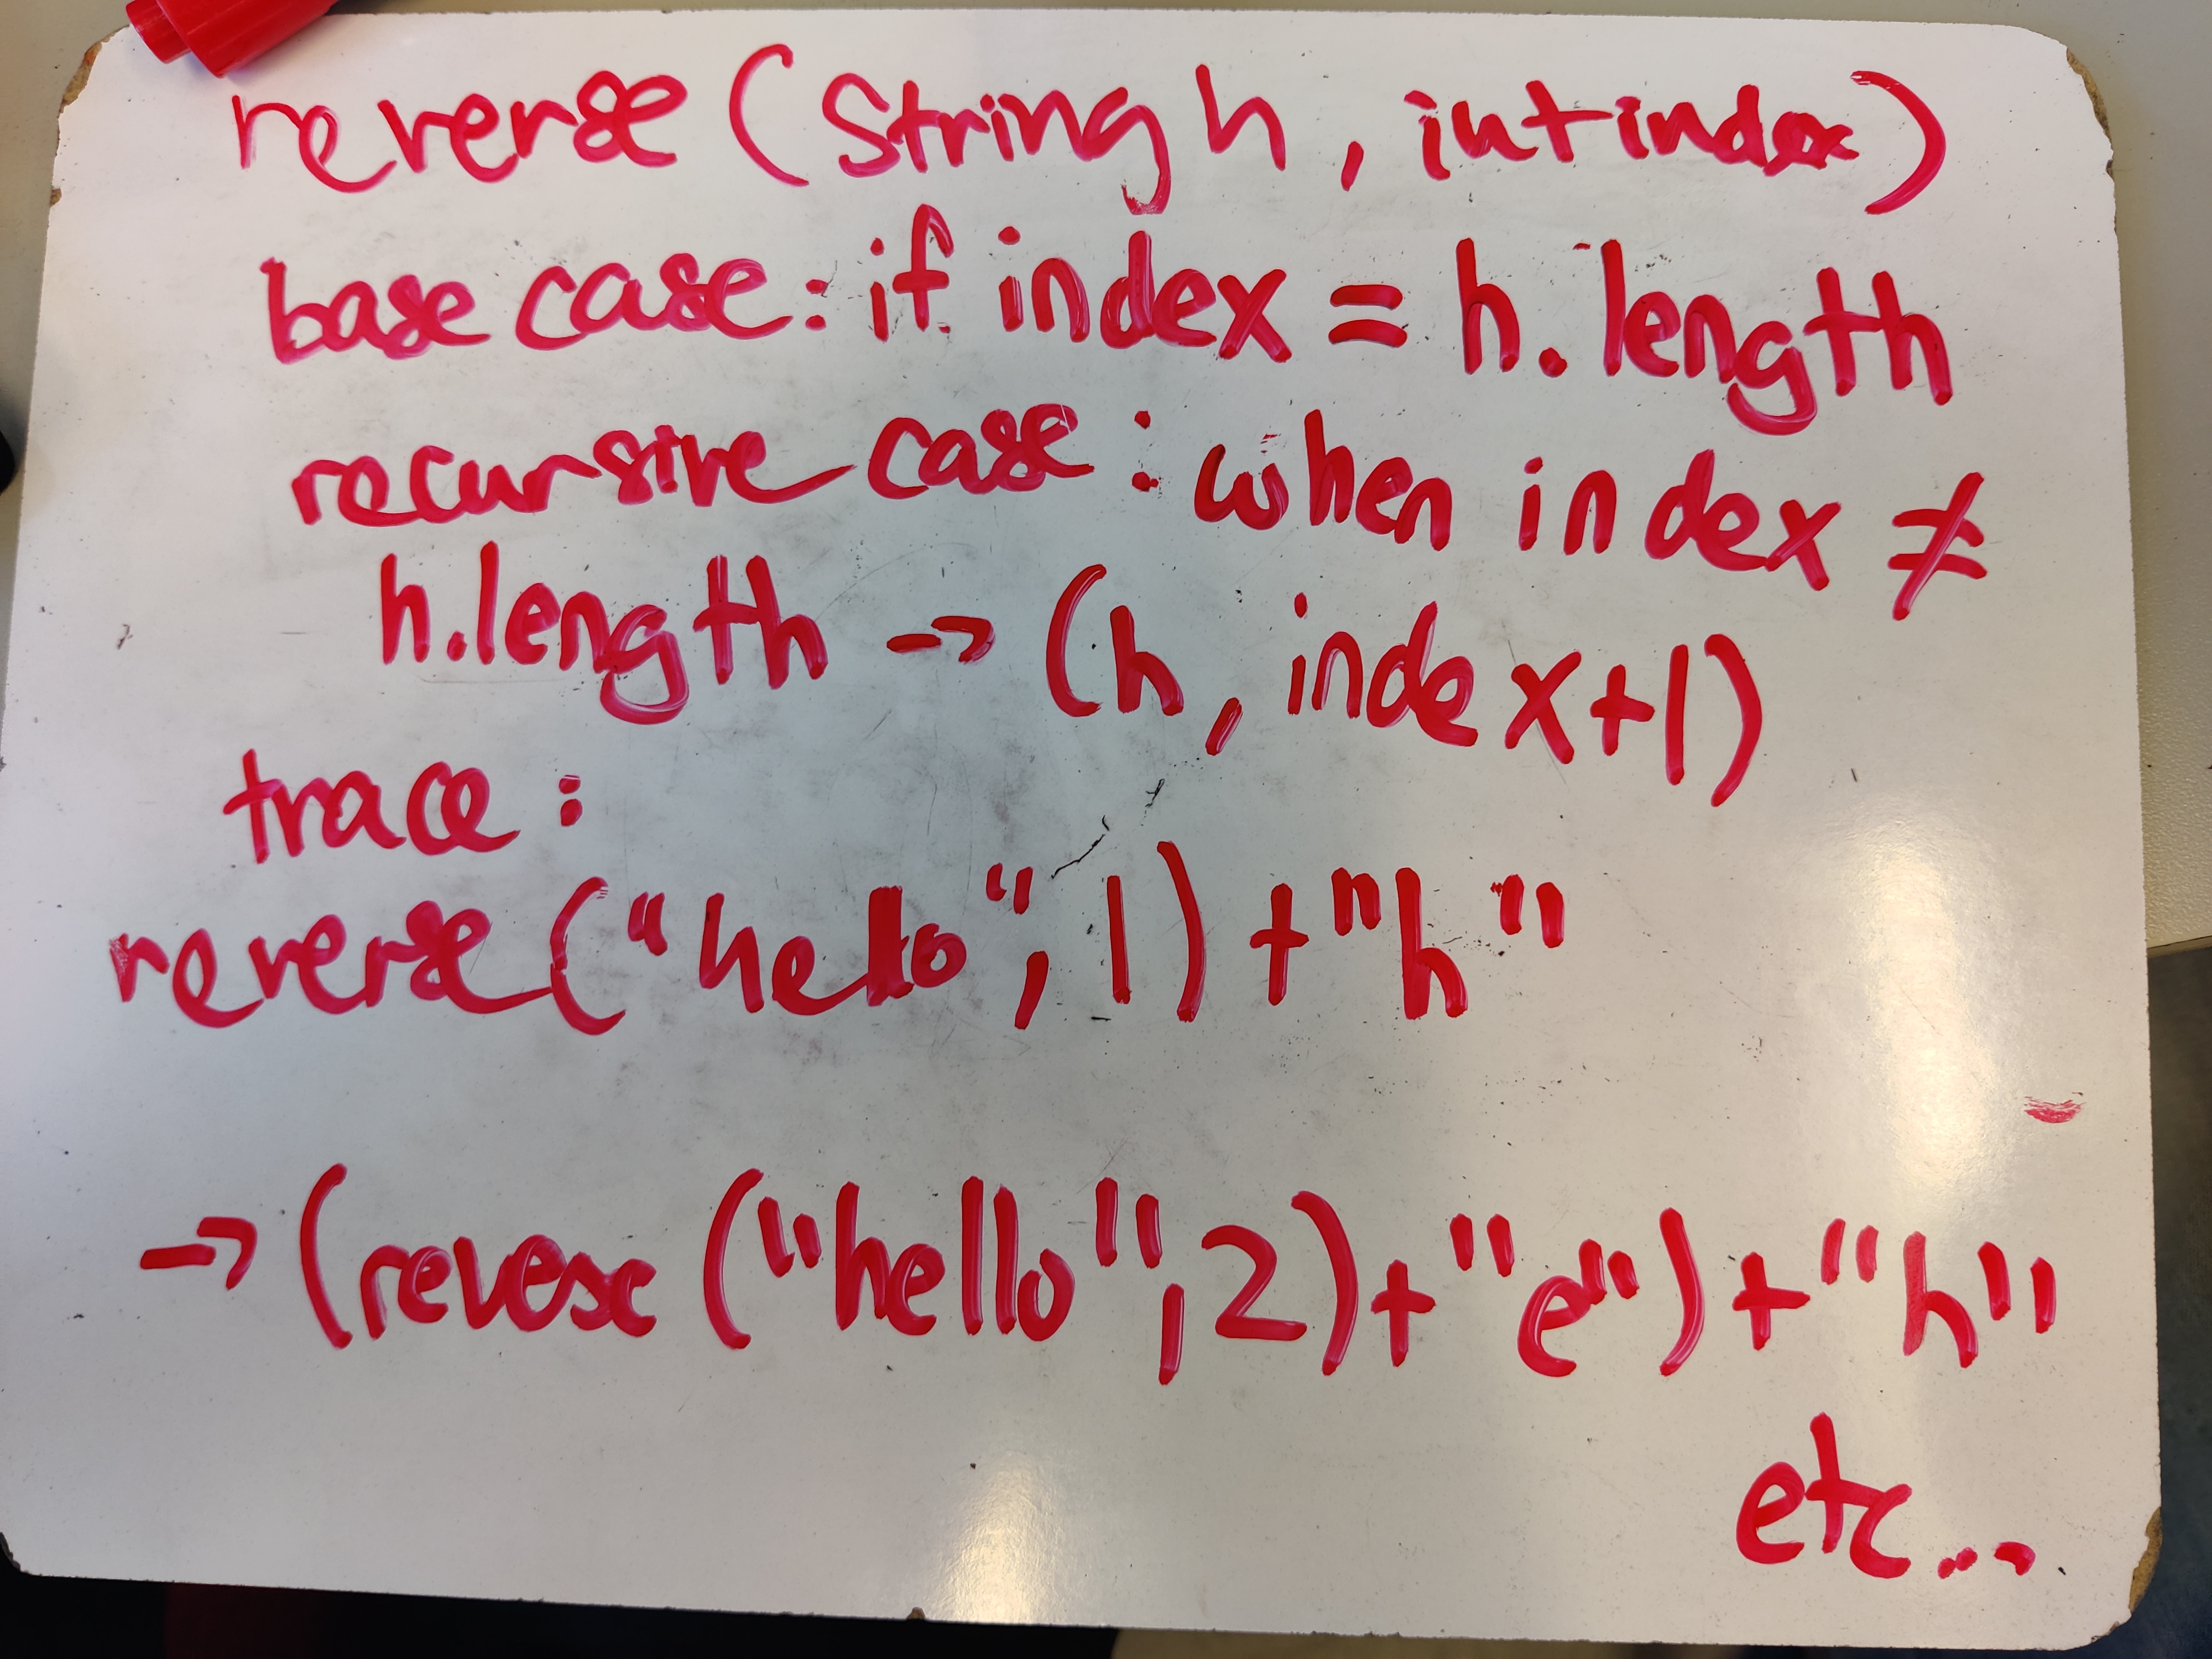 reverse (String h, int index)
base case: if index = h.length
recursive case: when index ≠
h.length → (h, index+1)
trace:
reverse ("hello", 1) + "h"
→ (revese ("hello", 2) + "e") + "h"
etc...